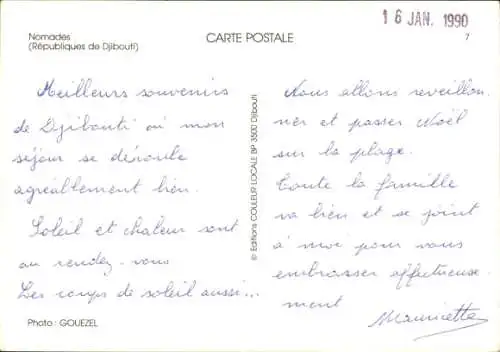 16 JAN. 1990
Nomades
(Républiques de Djibouti)
CARTE POSTALE
7
Meilleurs souvenirs
de Djibouti où mon
séjour se déroule
agréablement bien.
Soleil et chaleur sont
au rendez-vous
Les coups de soleil aussi...
© Editions COULEUR LOCALE BP 3500 Djibouti
Nous allons réveillon-
ner et passer Noël
sur la plage.
Toute la famille
va bien et se joint
à moi pour vous
embrasser affectueuse
ment
Mauricette
Photo : GOUEZEL